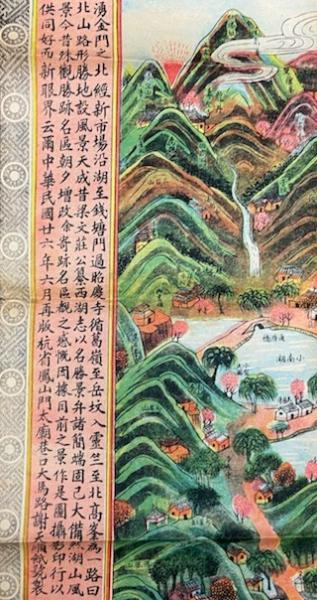 湧金門之北經新市場沿湖至錢塘門過昭慶寺循葛嶺至岳墳入靈竺至北高峯為一路曰
北山路形勝地設風景天成昔梁文莊公纂西湖志以名勝景弁諸簡端固已大備然湖山風
景今昔殊觀勝跡名區朝夕增改余寄跡名區觀之感慨因據目前之景作是圖攝影印行以
供同好而新眼界云爾中華民國廿六年六月再版杭省鳳山門太廟巷口大馬路謝天順紙號製
小南湖